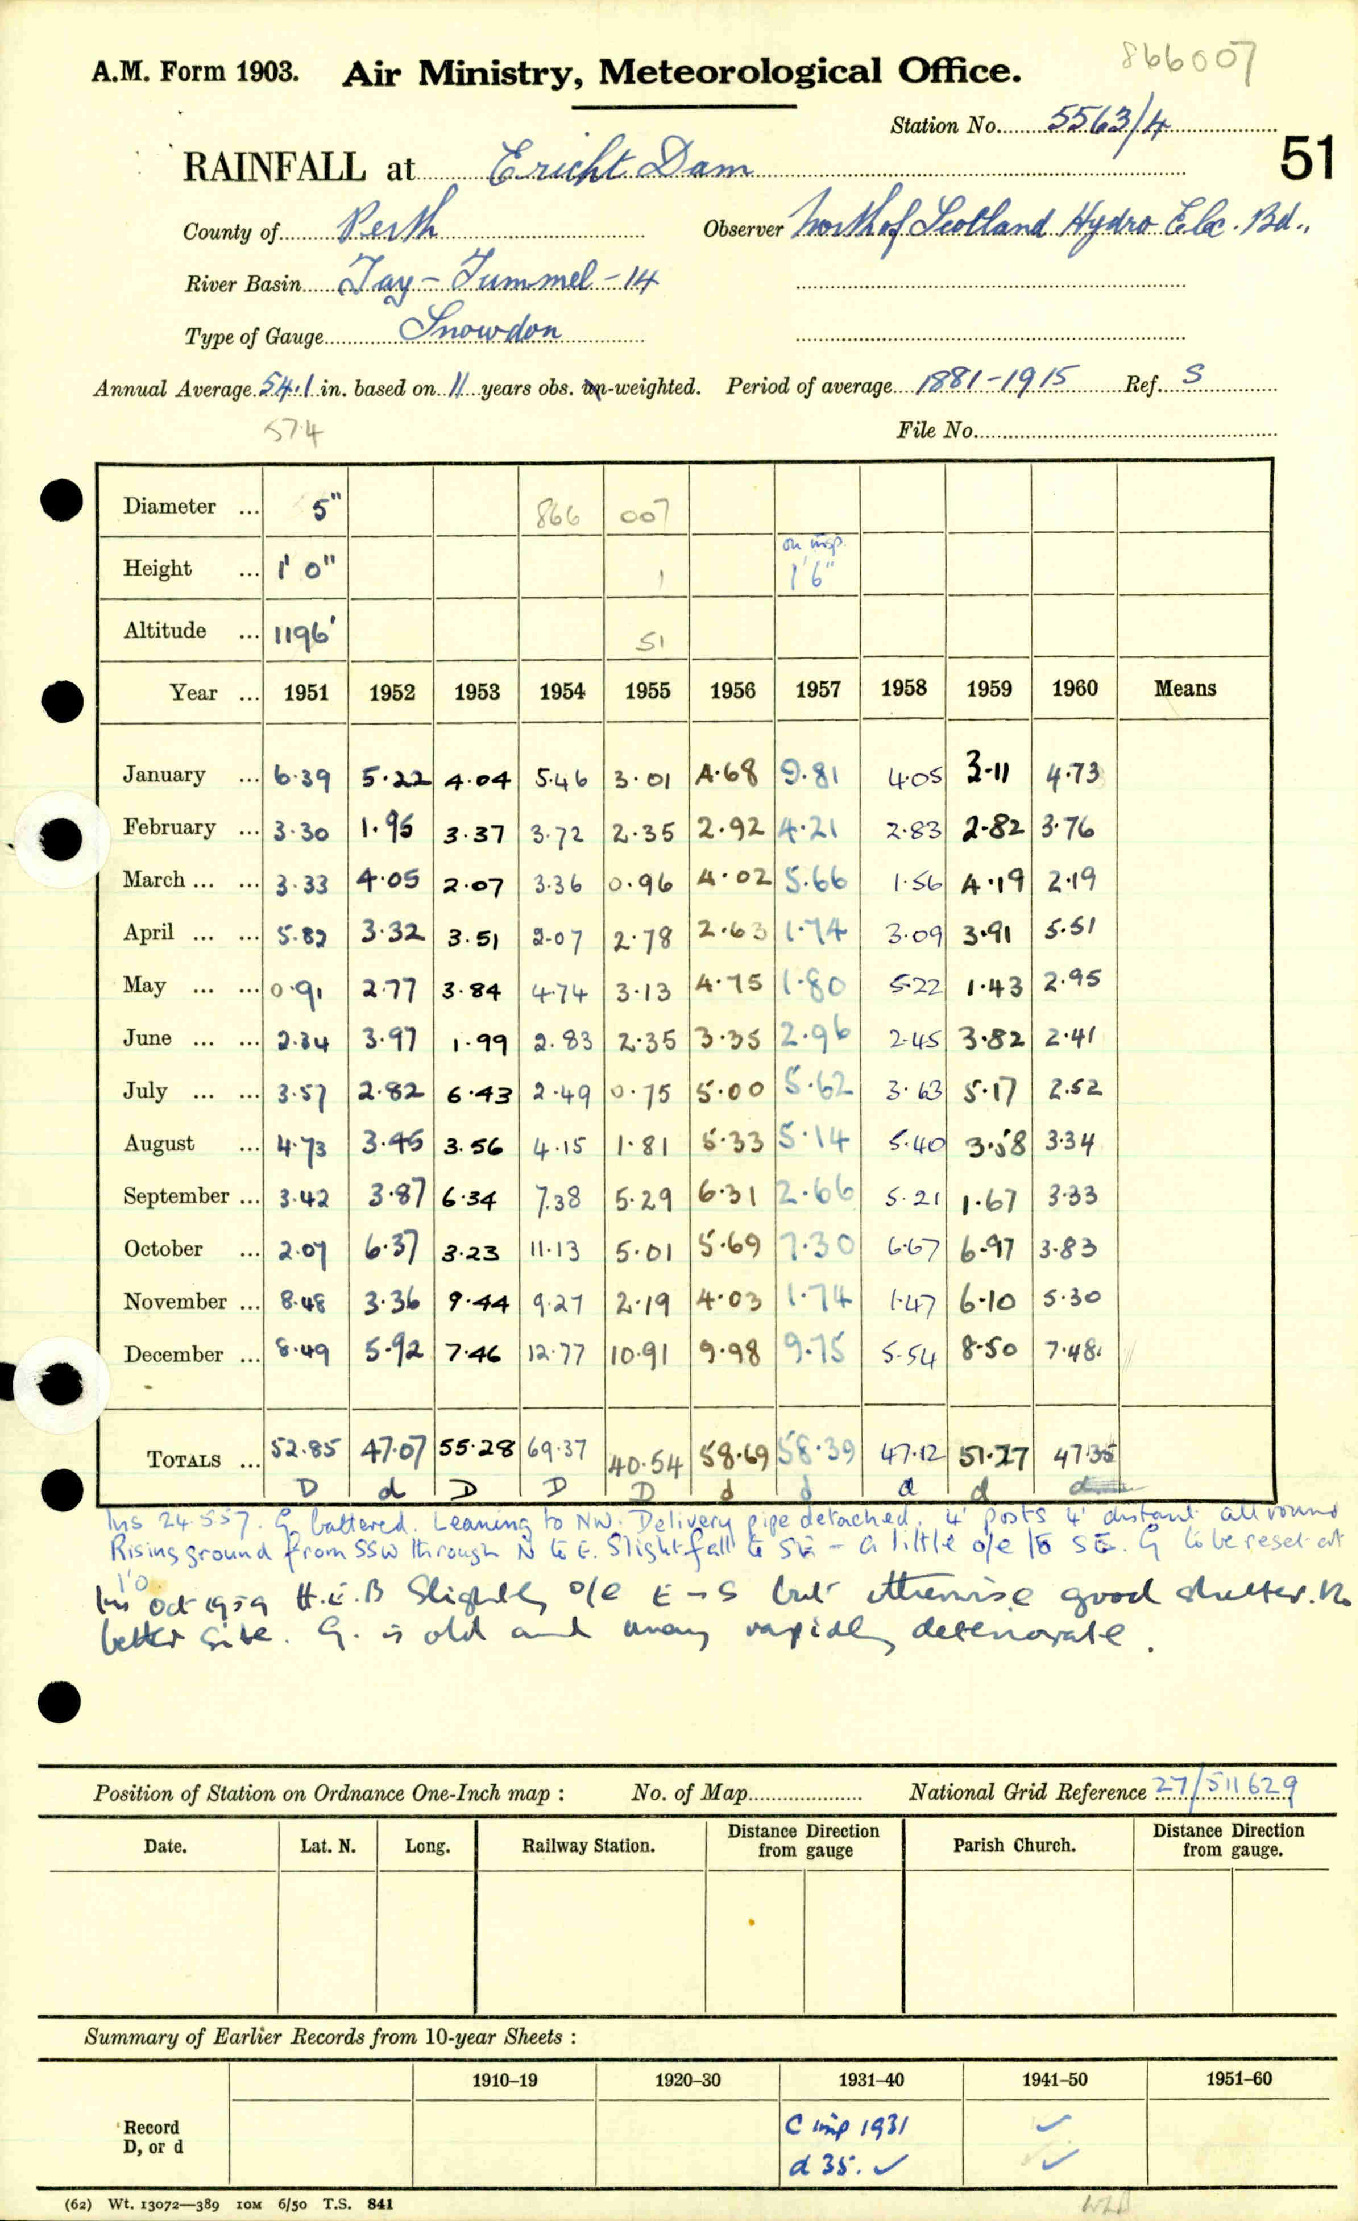 866007
A.M. Form 1903. Air Ministry, Meteorological Office.
Station No. 5563/4
51
RAINFALL at Ericht Dam
County of Perth Observer North of Scotland Hydro Elec. Bd.,
River Basin Tay - Tummel - 14
Type of Gauge Snowdon
Annual Average 54.1 in. based on 11 years obs. un-weighted. Period of average 1881-1915 Ref. S
574
File No.
Diameter ... 5" 866 007
on insp.
Height ... 1' 0" 1 1'6"
Altitude ... 1196' 51
Year ... 1951 1952 1953 1954 1955 1956 1957 1958 1959 1960 Means
January ... 6.39 5.22 4.04 5.46 3.01 4.68 9.81 4.05 3.11 4.73
February ... 3.30 1.95 3.37 3.72 2.35 2.92 4.21 2.83 2.82 3.76
March ... ... 3.33 4.05 2.07 3.36 0.96 4.02 5.66 1.56 4.19 2.19
April ... ... 5.82 3.32 3.51 2.07 2.78 2.63 1.74 3.09 3.91 5.51
May ... ... 0.91 2.77 3.84 4.74 3.13 4.75 1.80 5.22 1.43 2.95
June ... ... 2.34 3.97 1.99 2.83 2.35 3.35 2.96 2.45 3.82 2.41
July ... ... 3.57 2.82 6.43 2.49 0.75 5.00 5.62 3.63 5.17 2.52
August ... 4.73 3.45 3.56 4.15 1.81 5.33 5.14 5.40 3.58 3.34
September ... 3.42 3.87 6.34 7.38 5.29 6.31 2.66 5.21 1.67 3.33
October ... 2.07 6.37 3.23 11.13 5.01 5.69 7.30 6.67 6.97 3.83
November ... 8.48 3.36 9.44 9.27 2.19 4.03 1.74 1.47 6.10 5.30
December ... 8.49 5.92 7.46 12.77 10.91 9.98 9.75 5.54 8.50 7.48
TOTALS ... 52.85 47.07 55.28 69.37 40.54 58.69 58.39 47.12 51.27 47.35
D d D D D d d d d d
Ins 24.5.57. G battered. Leaning to NW. Delivery pipe detached. 4' posts 4' distant all round
Rising ground from SSW through N to E. Slight fall to SE - a little o/e to SE. G to be reset at
1'0
Ins Oct 1959 H.E.B Slightly o/e E - S but otherwise good shelter. No
better site. G. is old and may rapidly deteriorate.
Position of Station on Ordnance One-Inch map : No. of Map National Grid Reference 27/511629
Date. Lat. N. Long. Railway Station. Distance Direction from gauge Parish Church. Distance Direction from gauge.
Summary of Earlier Records from 10-year Sheets :
1910–19 1920–30 1931–40 1941–50 1951–60
Record C inp 1931 ✓
D, or d d 35. ✓ ✓
(62) Wt. 13072—389 10M 6/50 T.S. 841